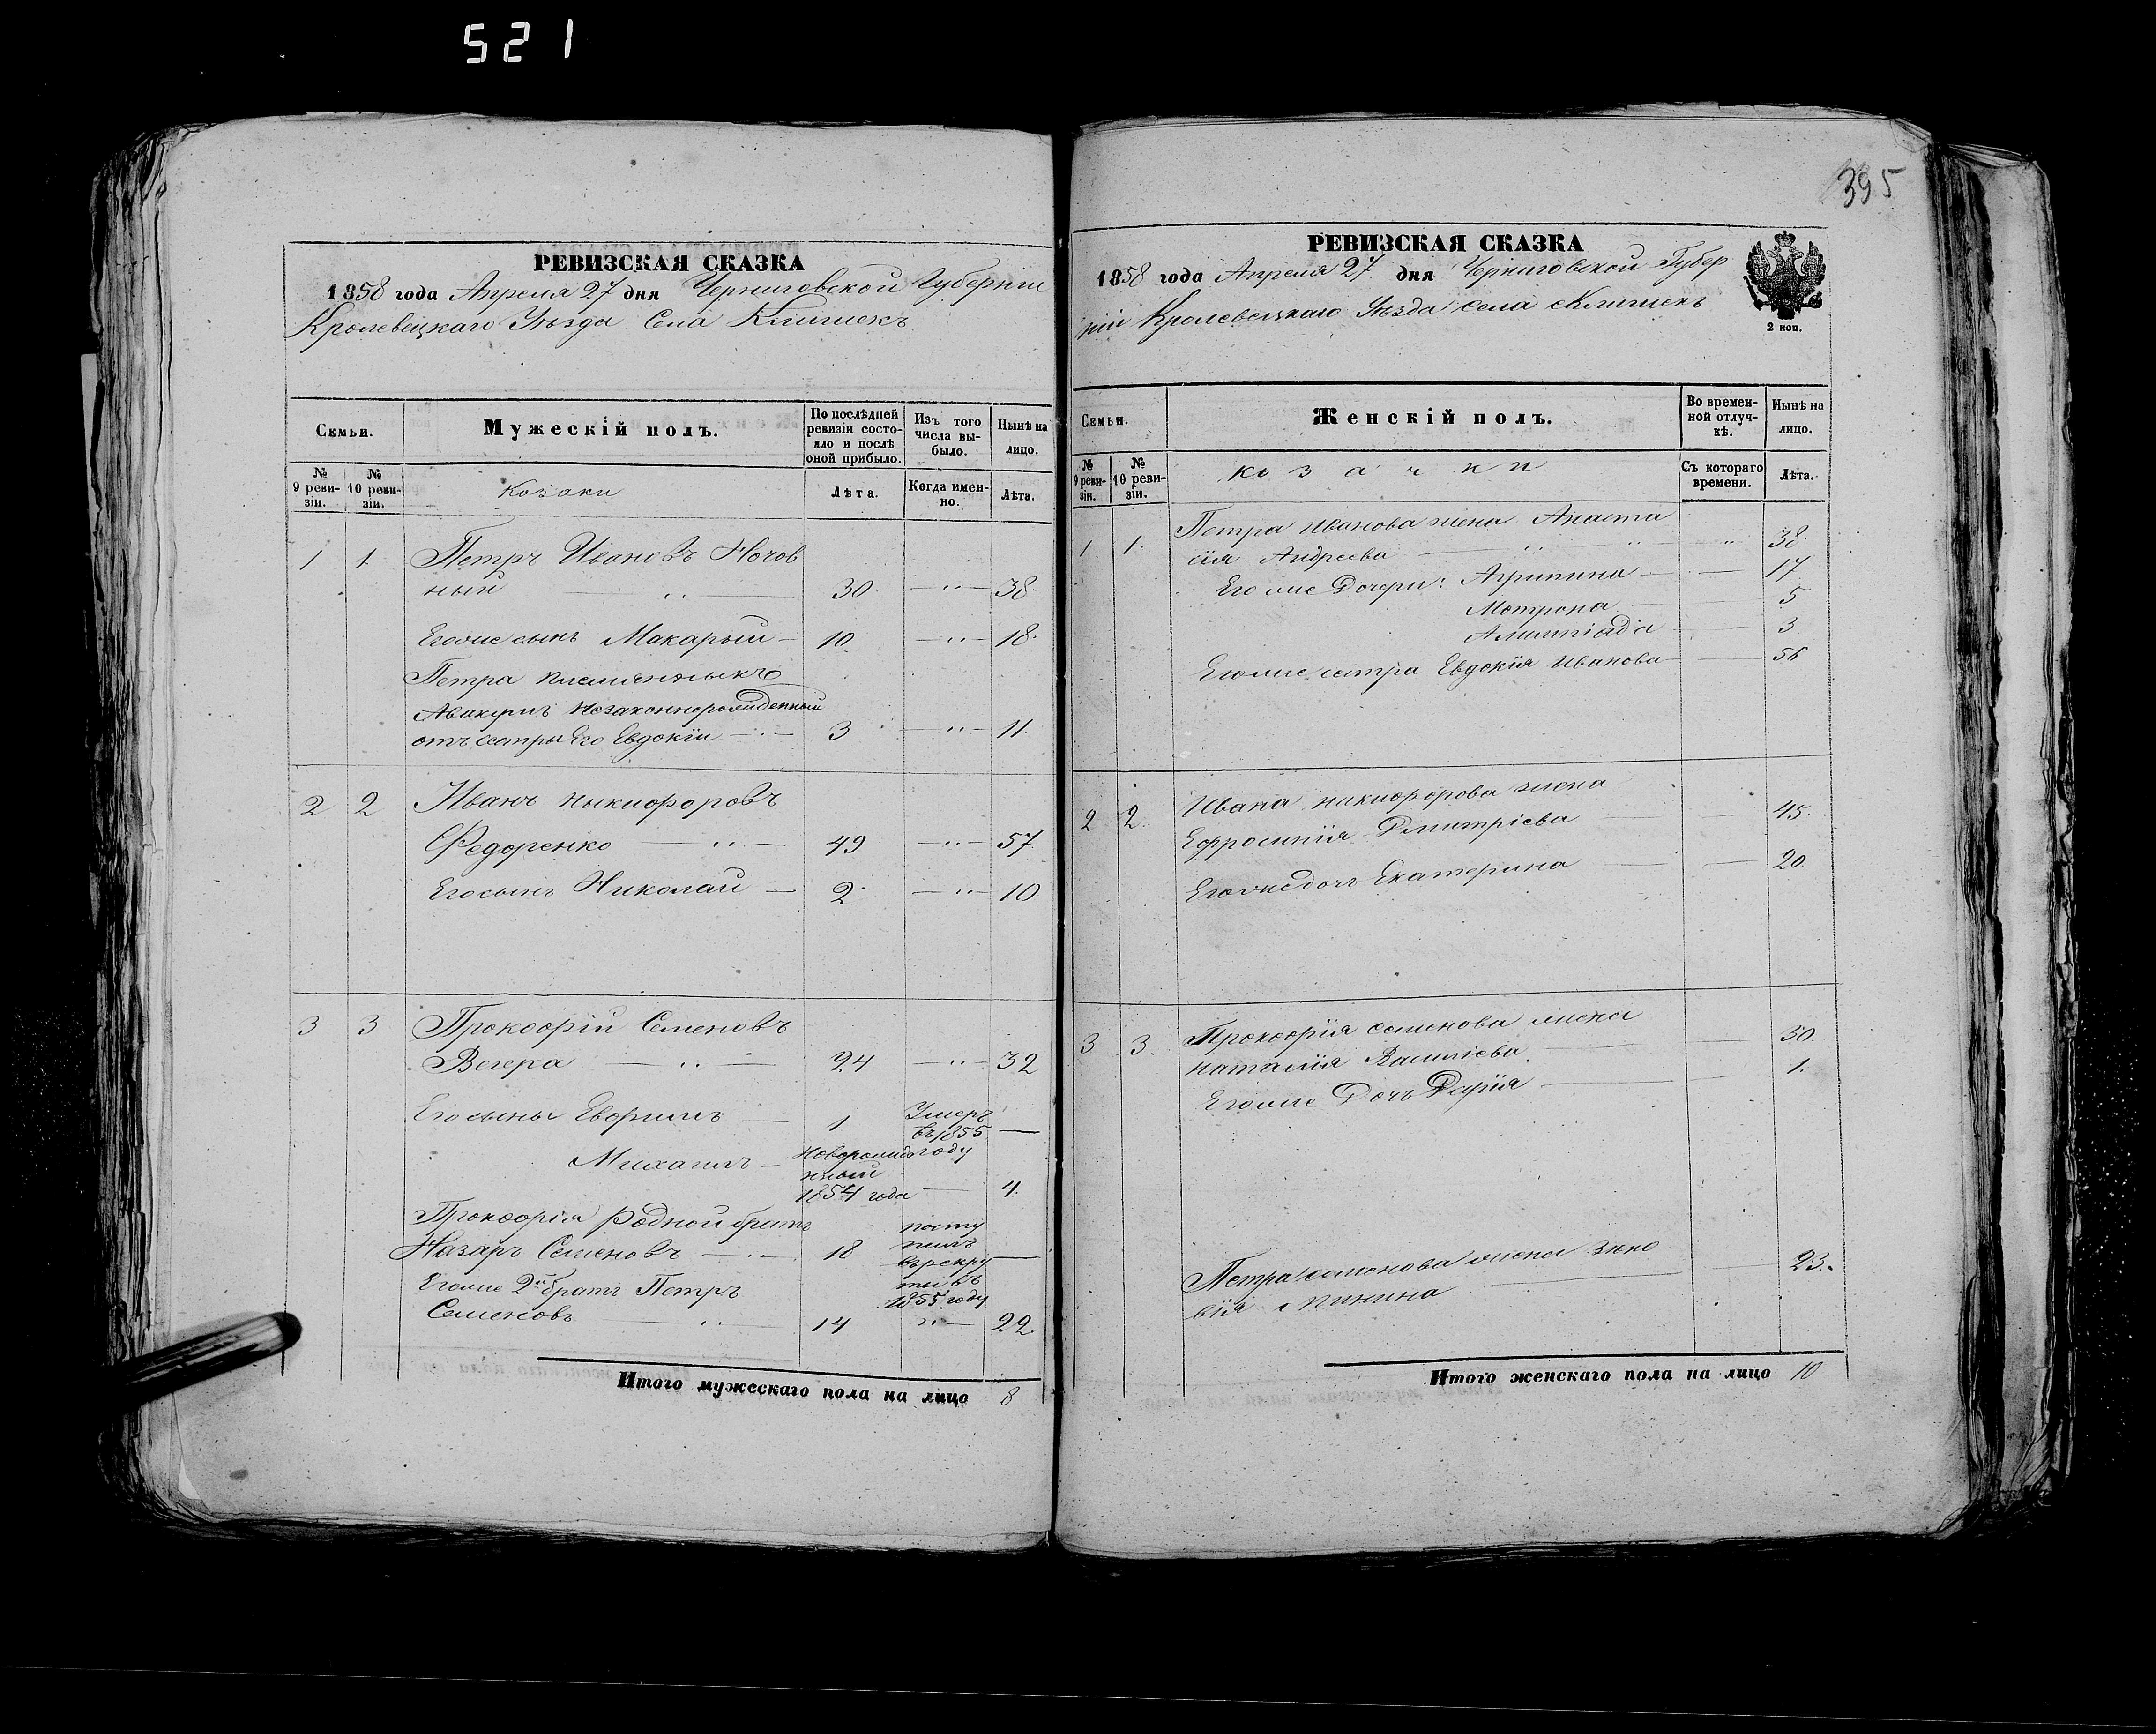 521
395
РЕВИЗСКАЯ СКАЗКА
1858 года Апреля 27 дня Черниговской Губерніи
Кролевецкаго Уѣзда Села Клишекъ
Семьи.
Мужескій полъ.
По послѣдней ревизіи состояло и послѣ оной прибыло.
Изъ того числа выбыло.
Нынѣ на лицо.
№ 9 ревизіи.
№ 10 ревизіи.
Козаки
Лѣта.
Когда именно.
Лѣта.
1 1 Петръ Ивановъ Ночов
ный 30 38
Егоже сынъ Макарый 10 18
Петра племянныкъ
Авакумъ незаконнорожденный
отъ сестры Его Евдокіи 3 11
2 2 Иванъ Ныкифоровъ
Федоренко 49 57
Его сынъ Николай 2 10
3 3 Прокофій Семеновъ
Вечера 24 32
Его сыны Ефримъ 1 Умеръ
въ 1855
году
Михаилъ Новорожде
нный
1854 года 4
Прокофія родной братъ
Назаръ Семеновъ 18 посту
пилъ
въ рекру
ты въ
1855 году
Егоже 2й братъ Петръ
Семеновъ 14 22
Итого мужескаго пола на лицо 8
РЕВИЗСКАЯ СКАЗКА
1858 года Апреля 27 дня Черниговской Губер
ніи Кролевецкаго Уѣзда села Клишекъ
2 коп.
Семьи.
Женскій полъ.
Во временной отлучкѣ.
Нынѣ на лицо.
№ 9 ревизіи.
№ 10 ревизіи.
козачки
Съ котораго времени.
Лѣта.
1 1 Петра Иванова жена Анаста
сія Андреева 38
Егоже Дочери: Агрипина 17
Мотрона 5
Алимпіада 3
Егоже сестра Евдокія Иванова 56
2 2 Ивана никифорова жена
Ефросинія Дмитріева 45
Егоже дочь Екатерина 20
3 3 Прокофія семенова жена 30
наталія Василіева
Егоже Дочь Дарія 1
Петра семенова жена Зено
вія 23
Итого женскаго пола на лицо 10